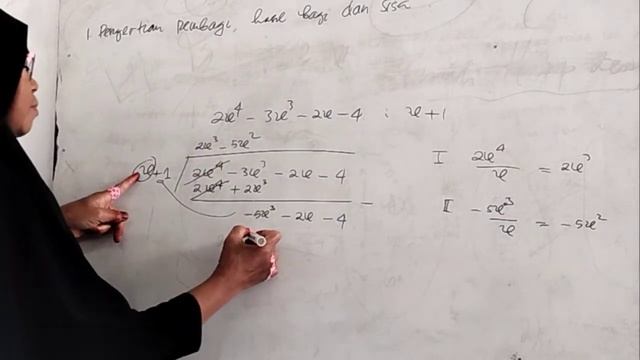 1. Pengertian pembagi, hasil bagi dan sisa
2x⁴ - 3x³ - 2x - 4 : x+1
2x³ - 5x²
x+1
2x⁴ - 3x³ - 2x - 4
2x⁴ + 2x³
-
-5x³ - 2x - 4
I 2x⁴/x = 2x³
II -5x³/x = -5x²